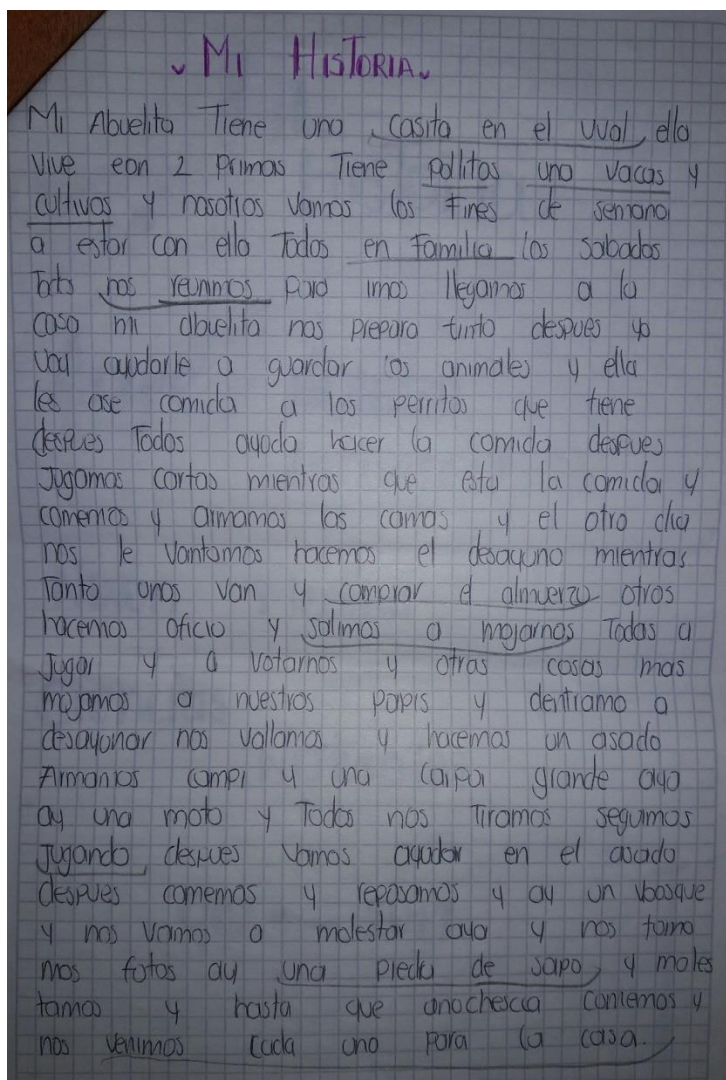 Mi Historia
Mi Abuelita Tiene una casita en el uval ella
vive con 2 Primas Tiene pollitos una vacas y
cultivos y nosotros vamos los fines de semana
a estar con ella Todos en familia los sabados
nos reunimos para irnos llegamos a la
casa mi abuelita nos prepara tinto despues yo
voy ayudarle a guardar los animales y ella
les ase comida a los perritos que tiene
despues Todos ayuda hacer la comida despues
Jugamos cartas mientras que esta la comida y
comemos y armamos las camas y el otro dia
nos le vantamos hacemos el desayuno mientras
Tanto unos van y comprar el almuerzo otros
hacemos oficio y salimos a mojarnos Todas a
Jugar y a votarnos y otras cosas mas
mojamos a nuestros papis y dentramo a
desayunar nos vallamos y hacemos un asado
Armamos campi y una carpa grande aya
ay una moto y Todos nos Tiramos seguimos
Jugando despues vamos ayudar en el asado
despues comemos y reposamos y ay un vbosque
y nos vamos a molestar aya y nos toma
mos fotos ay una piedra de sapo y moles
tamos y hasta que anochescia comemos y
nos venimos cada uno para la casa.